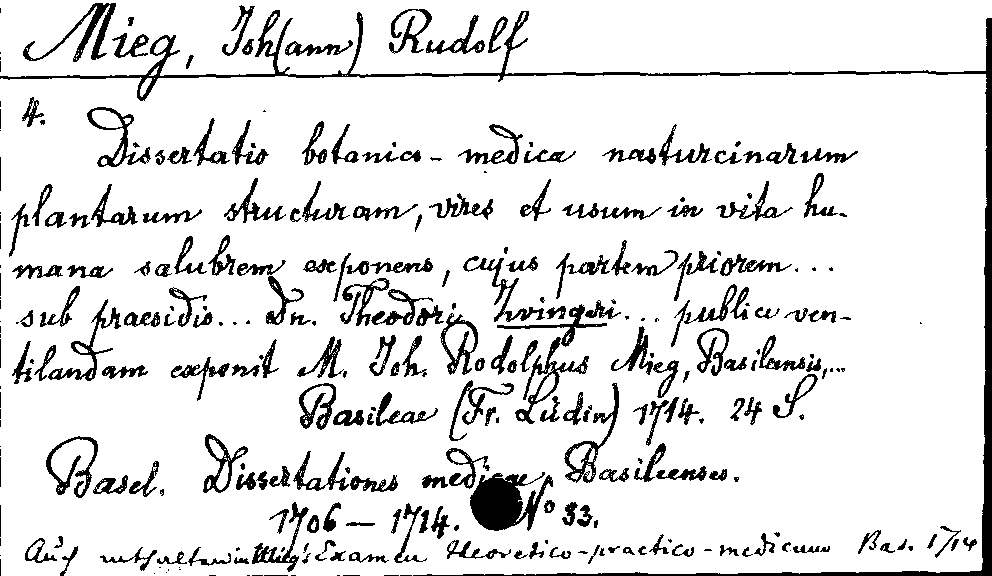 Mieg, Joh(ann) Rudolf
4.
Dissertatio botanico-medica nasturcinarum
plantarum structuram, vires et usum in vita hu-
mana salubrem exponens, cujus partem priorem...
sub praesidio... Dn. Theodori Zvingeri... publice ven-
tilandam exponit M. Joh. Rodolphus Mieg, Basileensis,...
Basileae (Fr. Lüdin) 1714. 24 S.
Basel. Dissertationes medicae Basileenses.
1706-1714. No 33.
Auch enthalten in Mieg's Examen theoretico-practico-medicum Bas. 1714